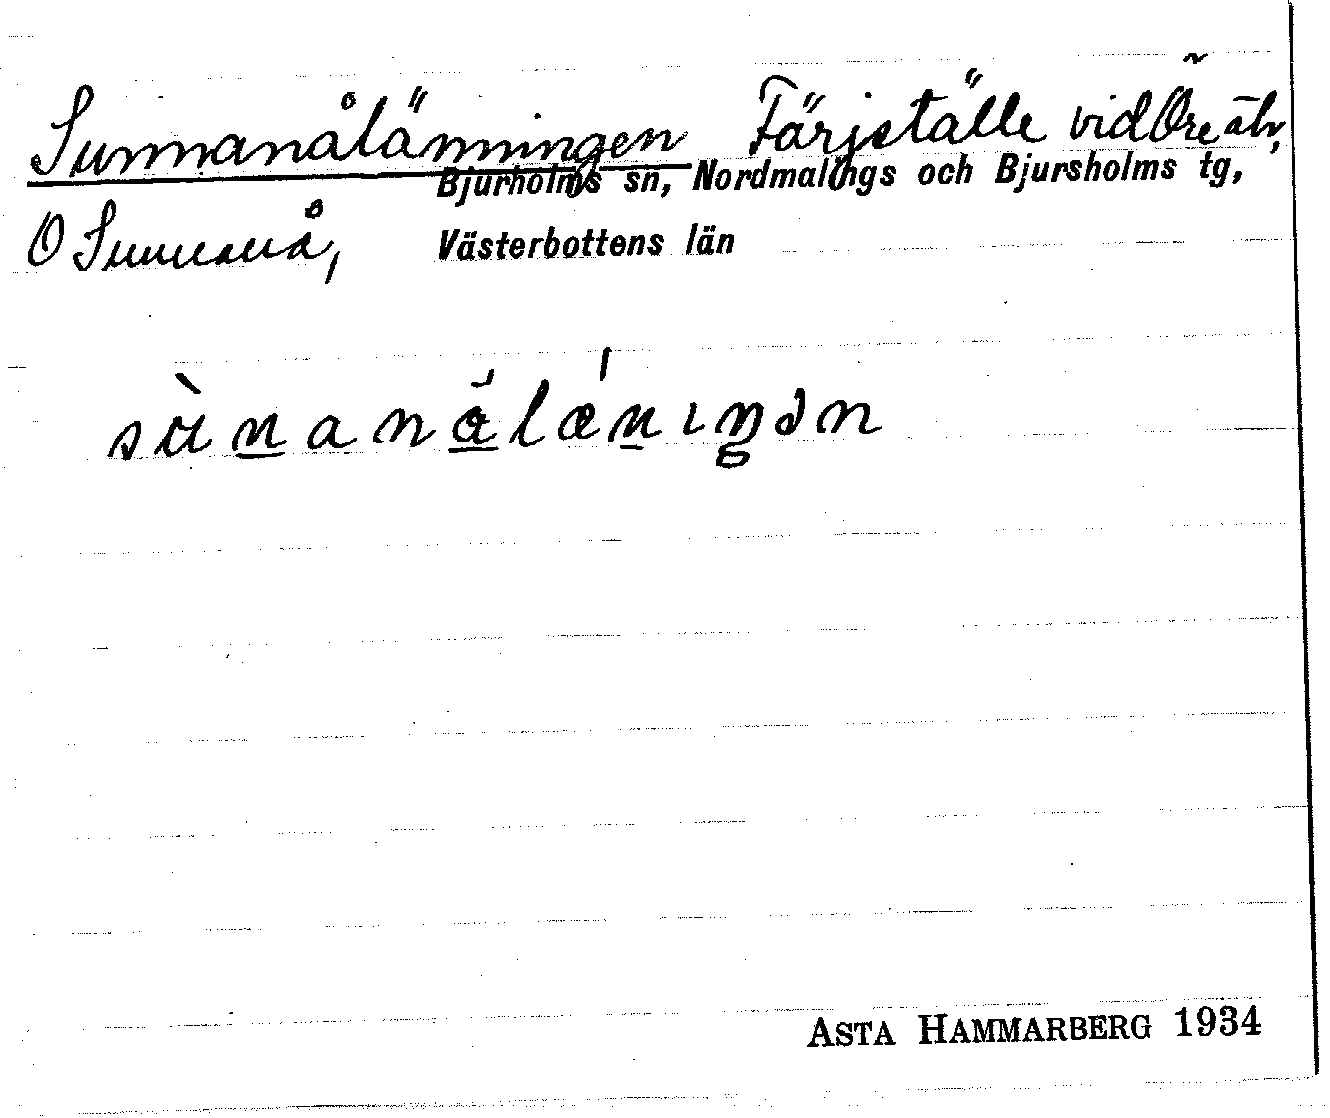 Sunnanålänningen Färjställe vid Öre älv,
Bjurholms sn, Nordmalings och Bjursholms tg,
O Sunnanå, Västerbottens län
sùnanålǽnıŋən
ASTA HAMMARBERG 1934